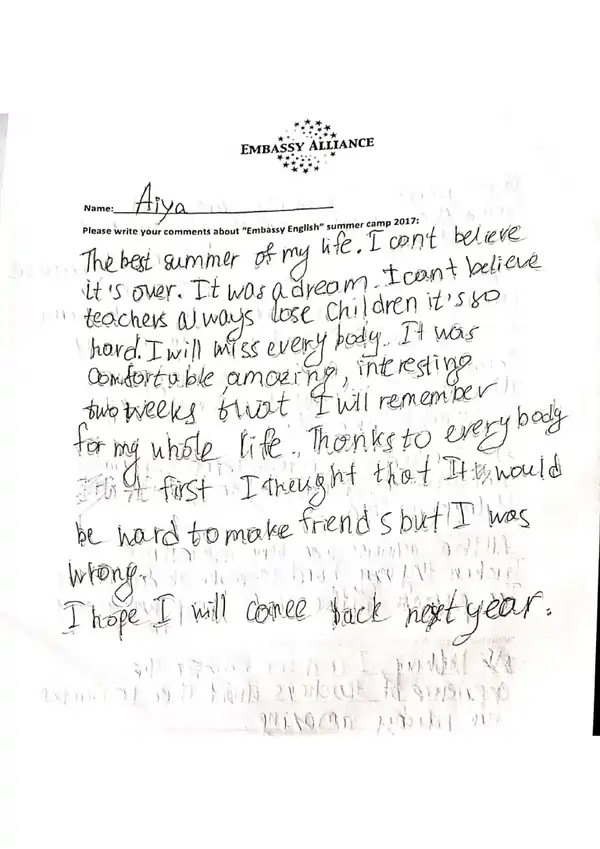 EMBASSY ALLIANCE
Name: Aiya
Please write your comments about "Embassy English" summer camp 2017:
The best summer of my life. I can't believe
it's over. It was a dream. I can't believe
teachers always lose children it's so
hard. I will miss every body. It was
comfortable, amazing, interesting
two weeks that I will remember
for my whole life. Thanks to everybody
first I thought that It would
be hard to make friends but I was
wrong.
I hope I will comee back next year.